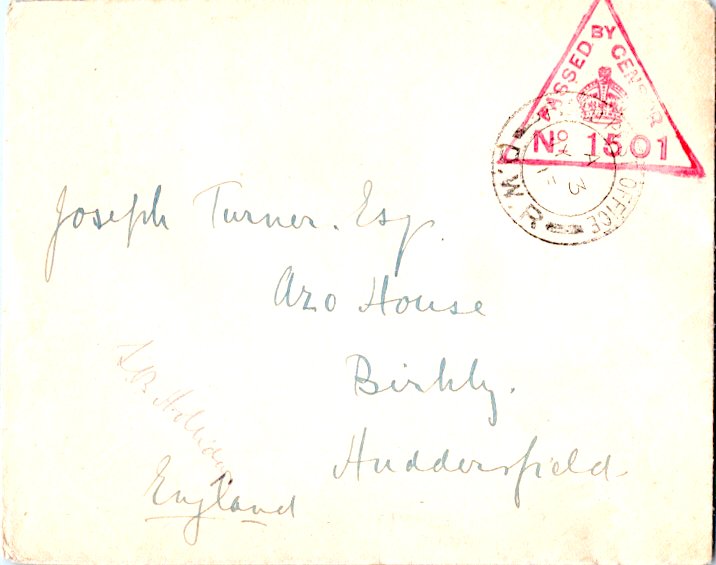 PASSED BY CENSOR
No 1501
OFFICE
R.W.D
A
3
Joseph Turner. Esq.
Azo House
Birkby.
Huddersfield
England